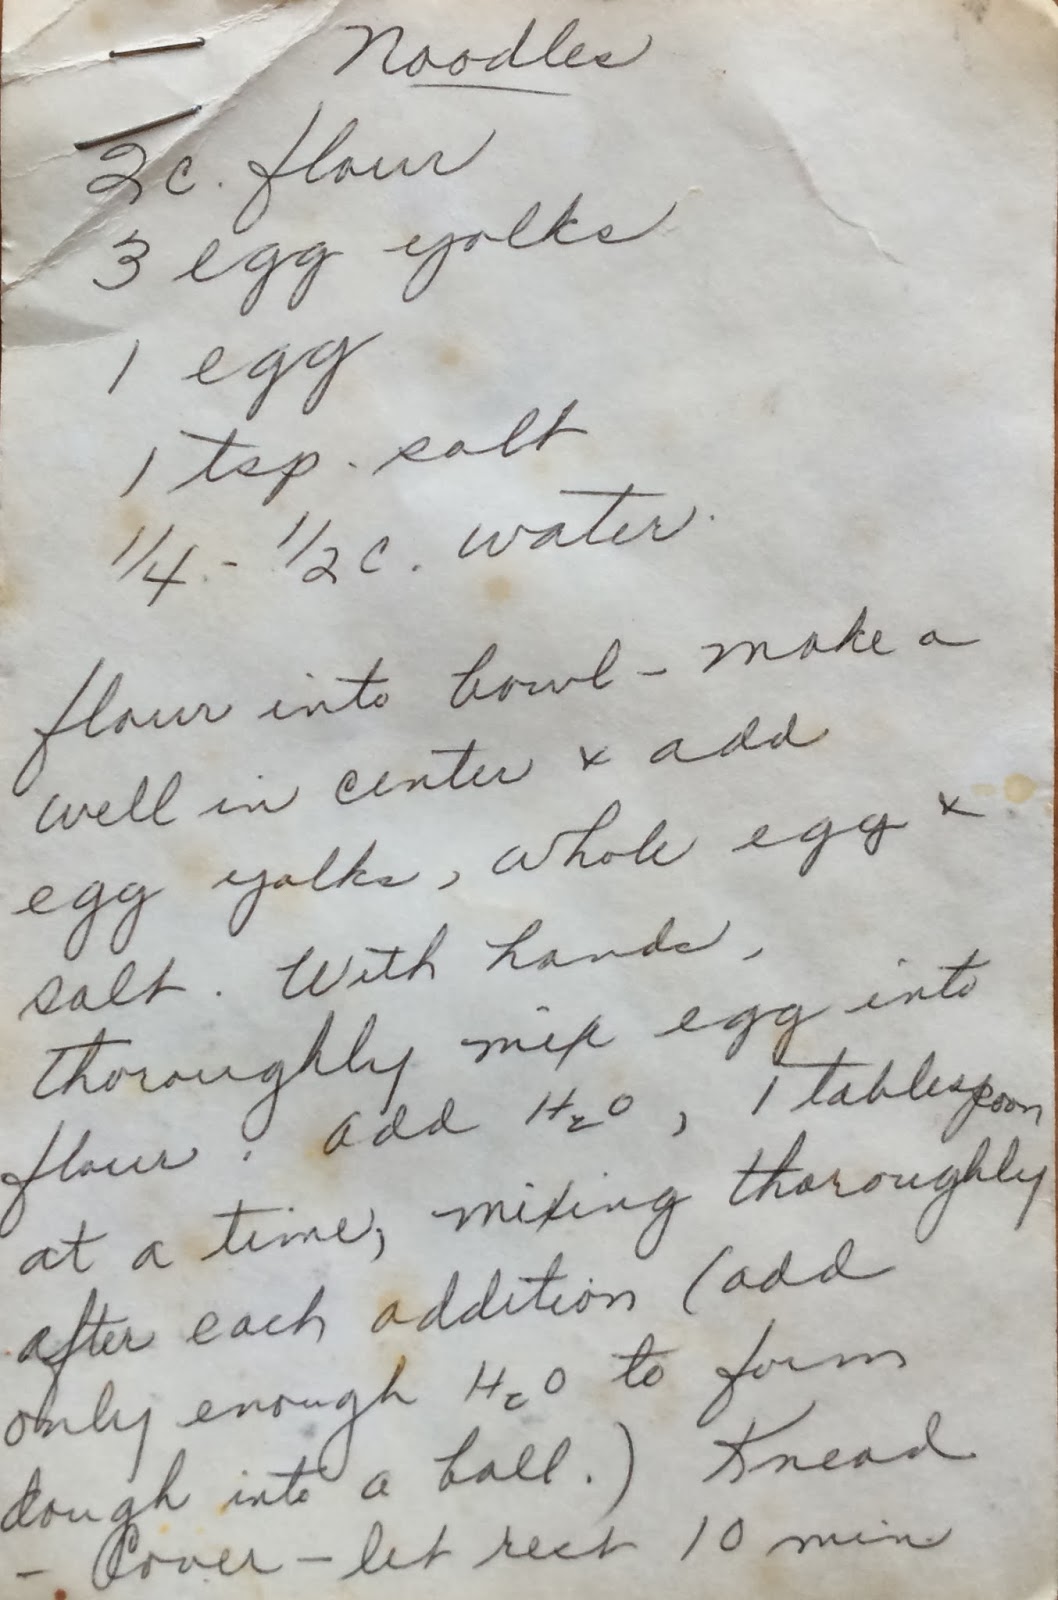 Noodles
2 c. flour
3 egg yolks
1 egg
1 tsp. salt
1/4 - 1/2 c. water
flour into bowl - make a
well in center & add
egg yolks, whole egg &
salt. With hands,
thoroughly mix egg into
flour. Add H₂O, 1 tablespoon
at a time, mixing thoroughly
after each addition (add
only enough H₂O to form
dough into a ball.) Knead
- Cover - let rest 10 min